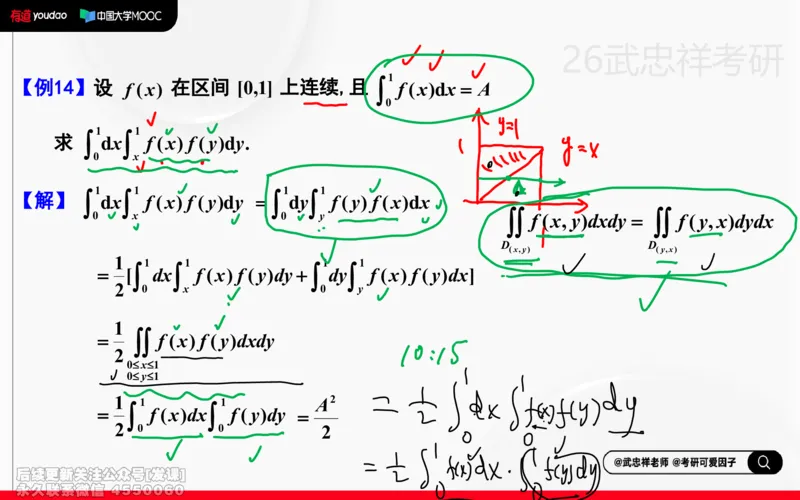 有道 youdao 中国大学MOOC
26武忠祥考研
【例14】设 f(x) 在区间 [0,1] 上连续,且 ∫₀¹ f(x)dx = A
求 ∫₀¹ dx ∫ₓ¹ f(x) f(y)dy.
y=1
1
y=x
【解】 ∫₀¹ dx ∫ₓ¹ f(x) f(y)dy = ∫₀¹ dy ∫ᵧ¹ f(y) f(x)dx
∬_{D(x,y)} f(x,y)dxdy = ∬_{D(y,x)} f(y,x)dydx
= 1/2 [∫₀¹ dx ∫ₓ¹ f(x) f(y)dy + ∫₀¹ dy ∫ᵧ¹ f(x) f(y)dx]
= 1/2 ∬_{0≤x≤1 0≤y≤1} f(x) f(y)dxdy
10:15
= 1/2 ∫₀¹ f(x)dx ∫₀¹ f(y)dy = A²/2
= 1/2 ∫₀¹ dx ∫₀¹ f(x)f(y)dy
= 1/2 ∫₀¹ f(x)dx · ∫₀¹ f(y)dy
@武忠祥老师 @考研可爱因子
后续更新关注公众号[发课]
永久联系微信 4550060